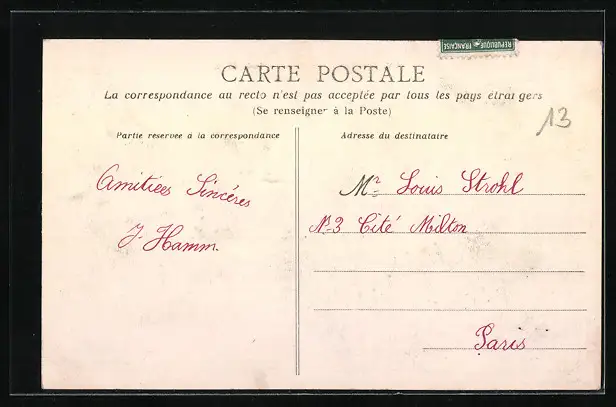 REPUBLIQUE FRANÇAISE
CARTE POSTALE
La correspondance au recto n'est pas acceptée par tous les pays étrangers
(Se renseigner à la Poste)
13
Partie reservée à la correspondance
Adresse du destinataire
Amitiees Sincéres
J. Hamm.
Mr Louis Strohl
No 3 Cité Milton
Paris